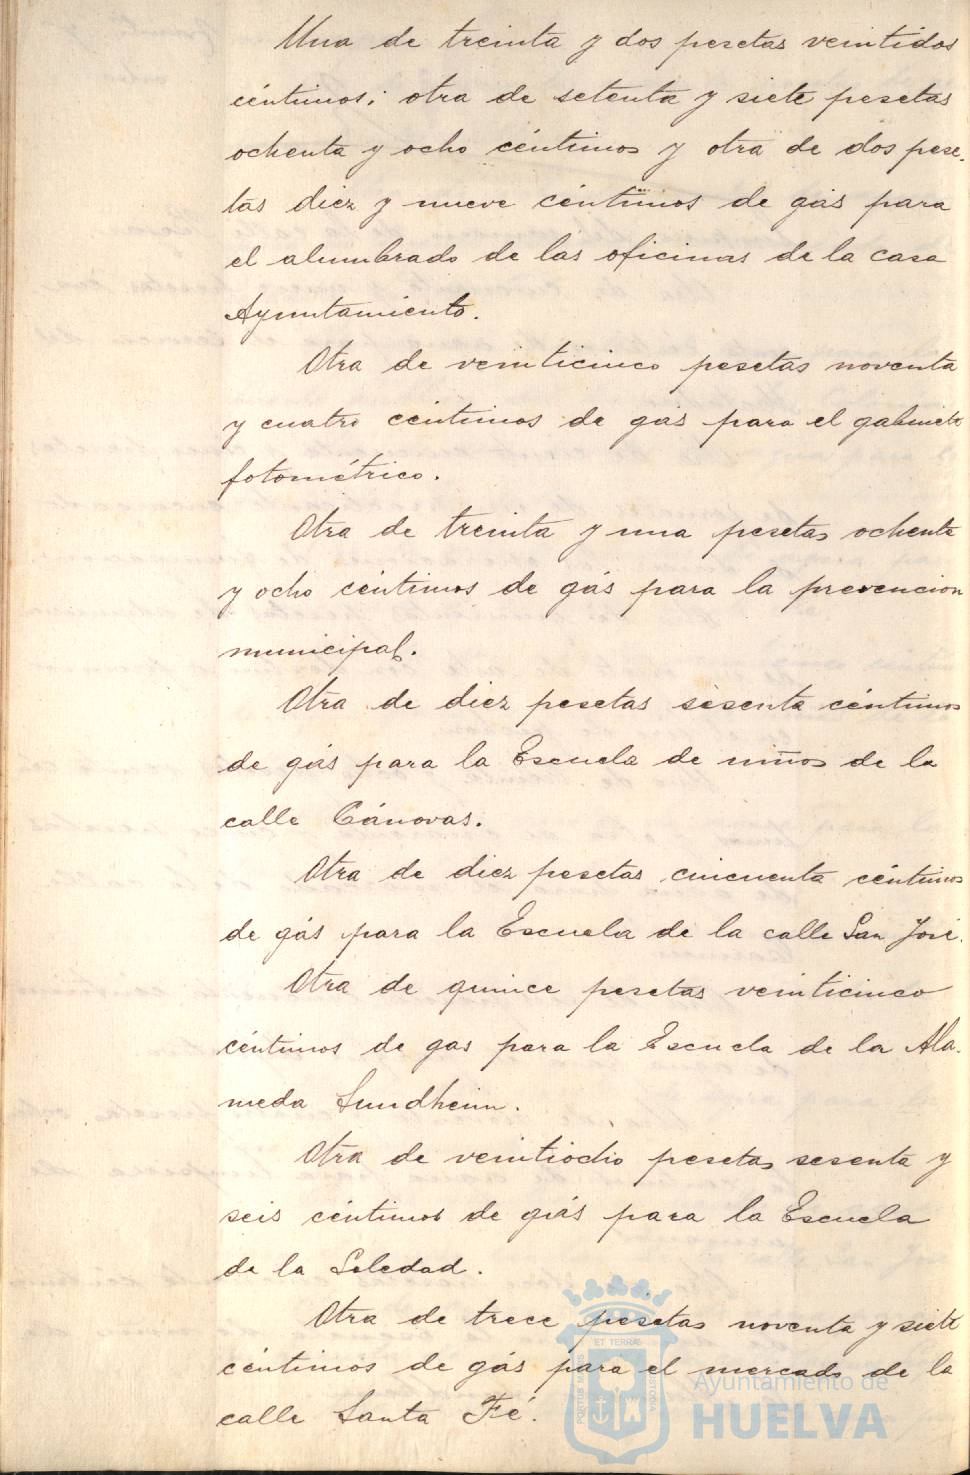 Una de treinta y dos pesetas veintidos
céntimos; otra de setenta y siete pesetas
ochenta y ocho céntimos y otra de dos pese-
tas diez y nueve céntimos de gás para
el alumbrado de las oficinas de la casa
Ayuntamiento.
Otra de veinticinco pesetas noventa
y cuatro céntimos de gás para el gabinete
fotométrico.
Otra de treinta y una pesetas ochenta
y ocho céntimos de gás para la prevencion
municipal.
Otra de diez pesetas sesenta céntimos
de gás para la Escuela de niños de la
calle Cánovas.
Otra de diez pesetas cincuenta céntimos
de gás para la Escuela de la calle San José.
Otra de quince pesetas veinticinco
céntimos de gas para la Escuela de la Ala-
meda Sundheim.
Otra de veintiocho pesetas sesenta y
seis céntimos de gás para la Escuela
de la Soledad.
Otra de trece pesetas noventa y siete
céntimos de gás para el mercado de la
calle Santa Fé.
PORTUS MARIS ET TERRAS CUSTODIA
Ayuntamiento de
HUELVA